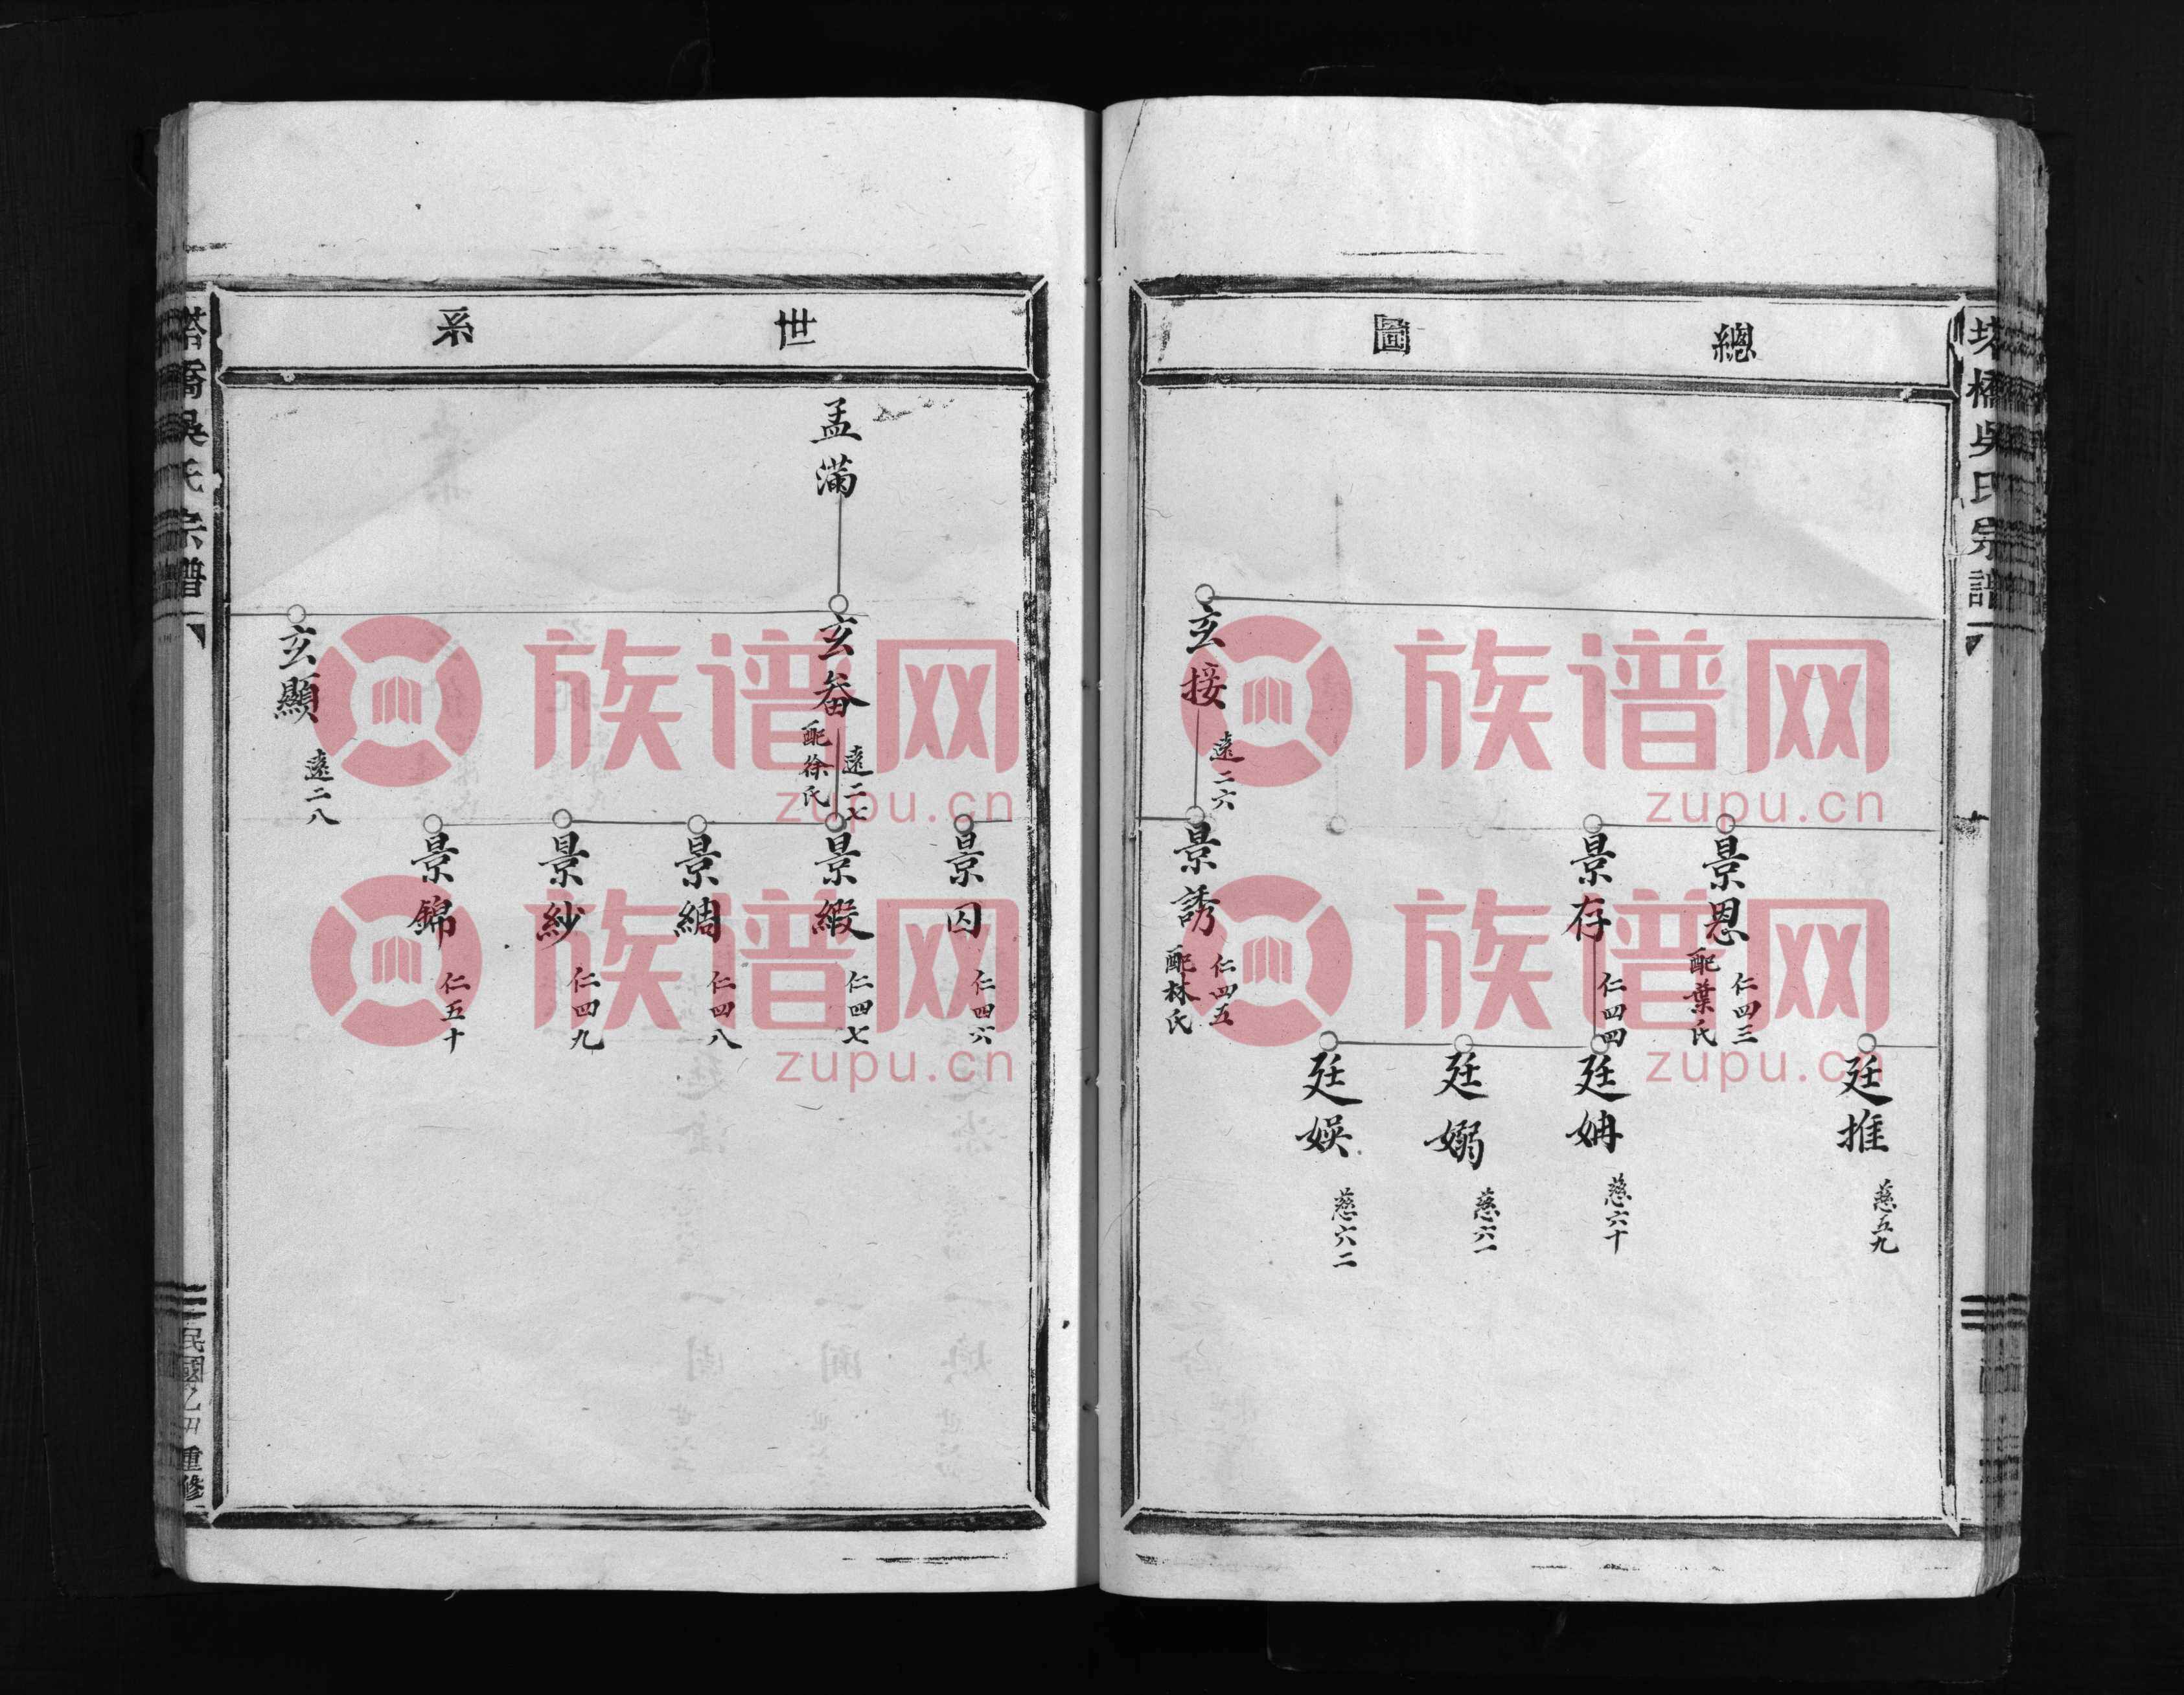 總圖
廷推 慈五九
景恩 仁四三 配葉氏
景存 仁四四
廷姌 慈六十
廷嫋 慈六一
廷娛 慈六二
玄接 遠二六
景誘 仁四五 配林氏
世系
景囚 仁四六
孟滿
玄畚 遠二七 配徐氏
景緞 仁四七
景綢 仁四八
景紗 仁四九
景錦 仁五十
玄顯 遠二八
塔橋吳氏宗譜
民國乙 重修
族谱网
zupu.cn
族谱网
zupu.cn
族谱网
zupu.cn
族谱网
zupu.cn